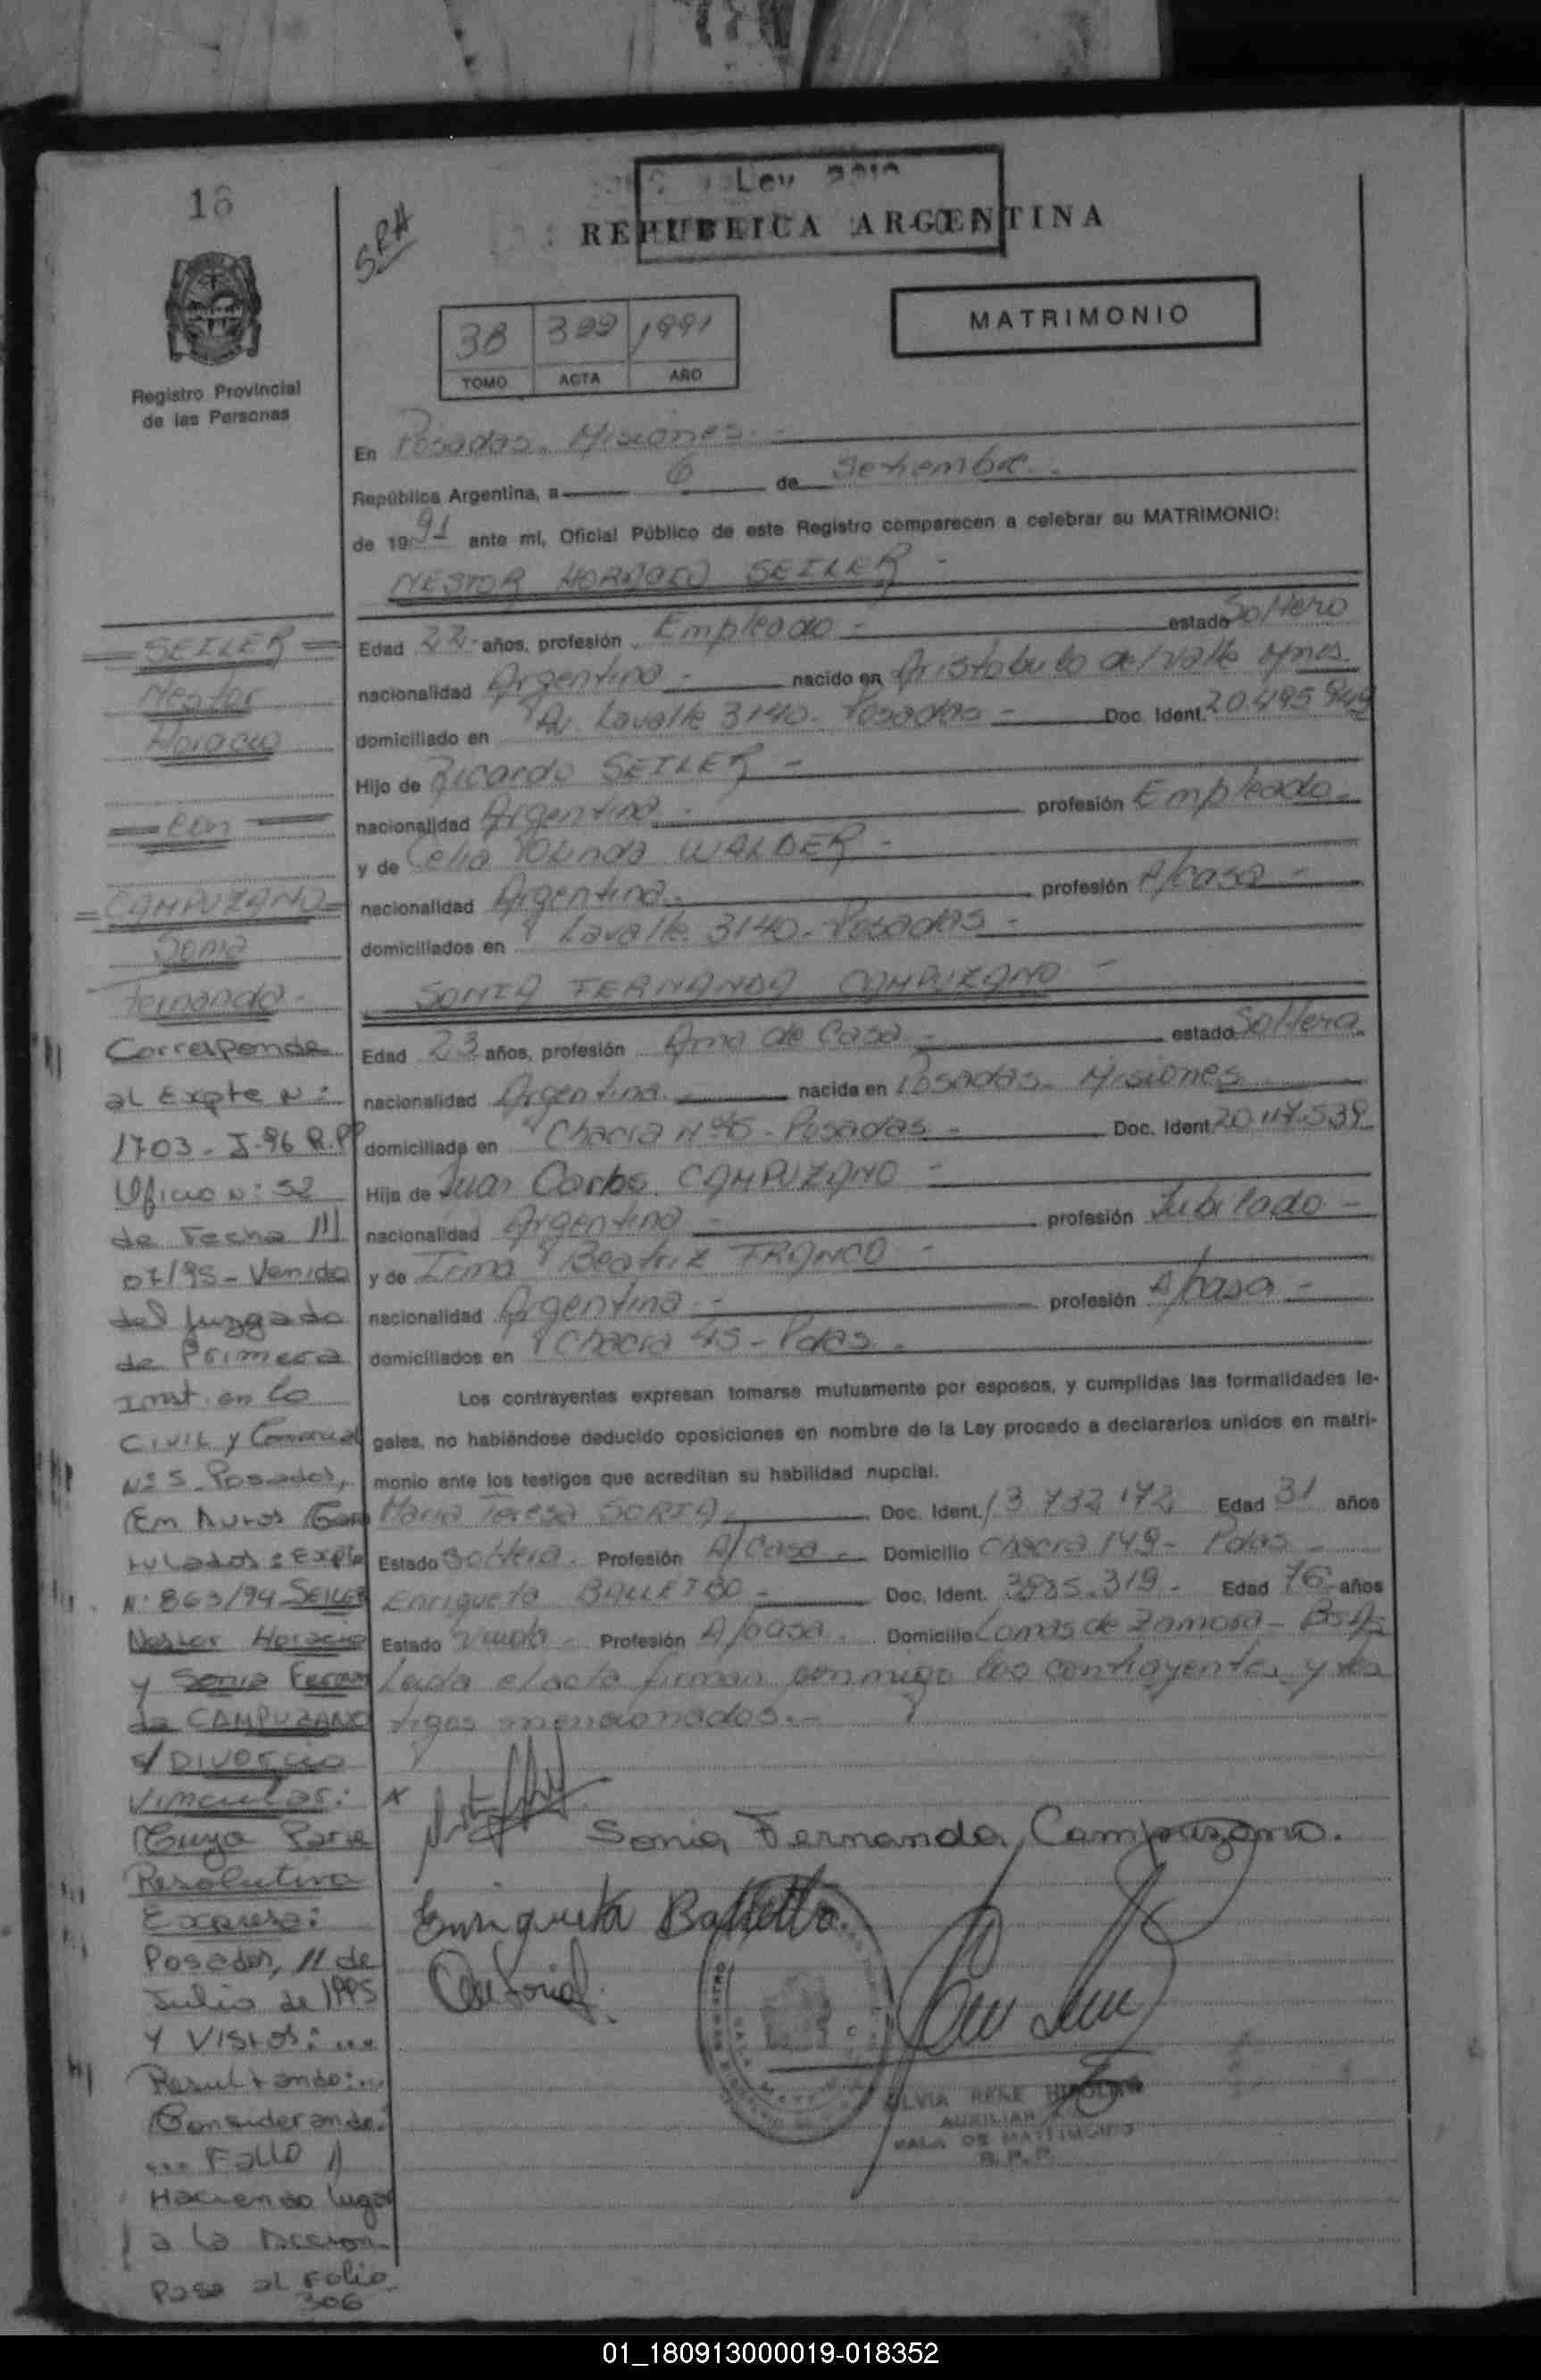 18
SRH
Ley
REPUBLICA ARGENTINA
MATRIMONIO
38 399 1991
TOMO ACTA AÑO
Registro Provincial
de las Personas
En Posadas. Misiones.
República Argentina, a 6 de Setiembre.
de 1991 ante mí, Oficial Público de este Registro comparecen a celebrar su MATRIMONIO:
NESTOR HORACIO SEILER -
Edad 22 años, profesión Empleado - estado Soltero
nacionalidad Argentina - nacido en Aristobulo del Valle Mnes.
domiciliado en Av. Lavalle 3140. Posadas - Doc. Ident. 20.495.949
Hijo de Ricardo SEILER -
nacionalidad Argentina - profesión Empleado.
y de Celia Yolinda WALDER -
nacionalidad Argentina. profesión A/casa -
domiciliados en Lavalle 3140. Posadas -
SONIA FERNANDA CAMPUZANO -
Edad 23 años, profesión Ama de Casa - estado Soltera
nacionalidad Argentina. nacida en Posadas - Misiones
domiciliada en Chacra Nº 45 - Posadas - Doc. Ident. 20.117.539
Hija de Juan Carlos CAMPUZANO -
nacionalidad Argentina - profesión Jubilado -
y de Irma Beatriz FRANCO -
nacionalidad Argentina - profesión A/casa -
domiciliados en Chacra 45 - Pdas.
Los contrayentes expresan tomarse mutuamente por esposos, y cumplidas las formalidades le-
gales, no habiéndose deducido oposiciones en nombre de la Ley procedo a declararlos unidos en matri-
monio ante los testigos que acreditan su habilidad nupcial.
Maria Teresa SORIA. Doc. Ident. 13 732 172 Edad 31 años
Estado Soltera. Profesión A/Casa - Domicilio Chacra 149 - Pdas -
Enriqueta BALLETBO - Doc. Ident. 3885.319 - Edad 76 años
Estado Viuda - Profesión A/casa. Domicilio Lomas de Zamora - Bs As
Leida el acta firman conmigo los contrayentes y tes
tigos mencionados.-
Sonia Fernanda Campuzano.
Enriqueta
SILVIA RENE
AUXILIAR
SALA DE MATRIMONIO
R. P. P.
= SEILER =
Nestor
Horacio
= con =
= CAMPUZANO =
Sonia
Fernanda.
Corresponde
al Expte N:
1703 - J-96 R.PP
Oficio N: 52
de Fecha 11/
07/95 - Venido
del Juzgado
de Primera
Inst. en lo
Civil y Comercial
Nº 5 Posadas,
En Autos Cara
tulados: Expte
N: 863/94 SEILER
Nestor Horacio
y Sonia Fernan
da CAMPUZANO
s/ DIVORCIO
Vincular:
Cuya Parte
Resolutiva
Expresa:
Posadas, 11 de
Julio de 1995
Y Vistos: ...
Resultando: ...
Considerando:
... Fallo 1)
Haciendo lugar
a la Accion
Pasa al Folio
306
01_180913000019-018352